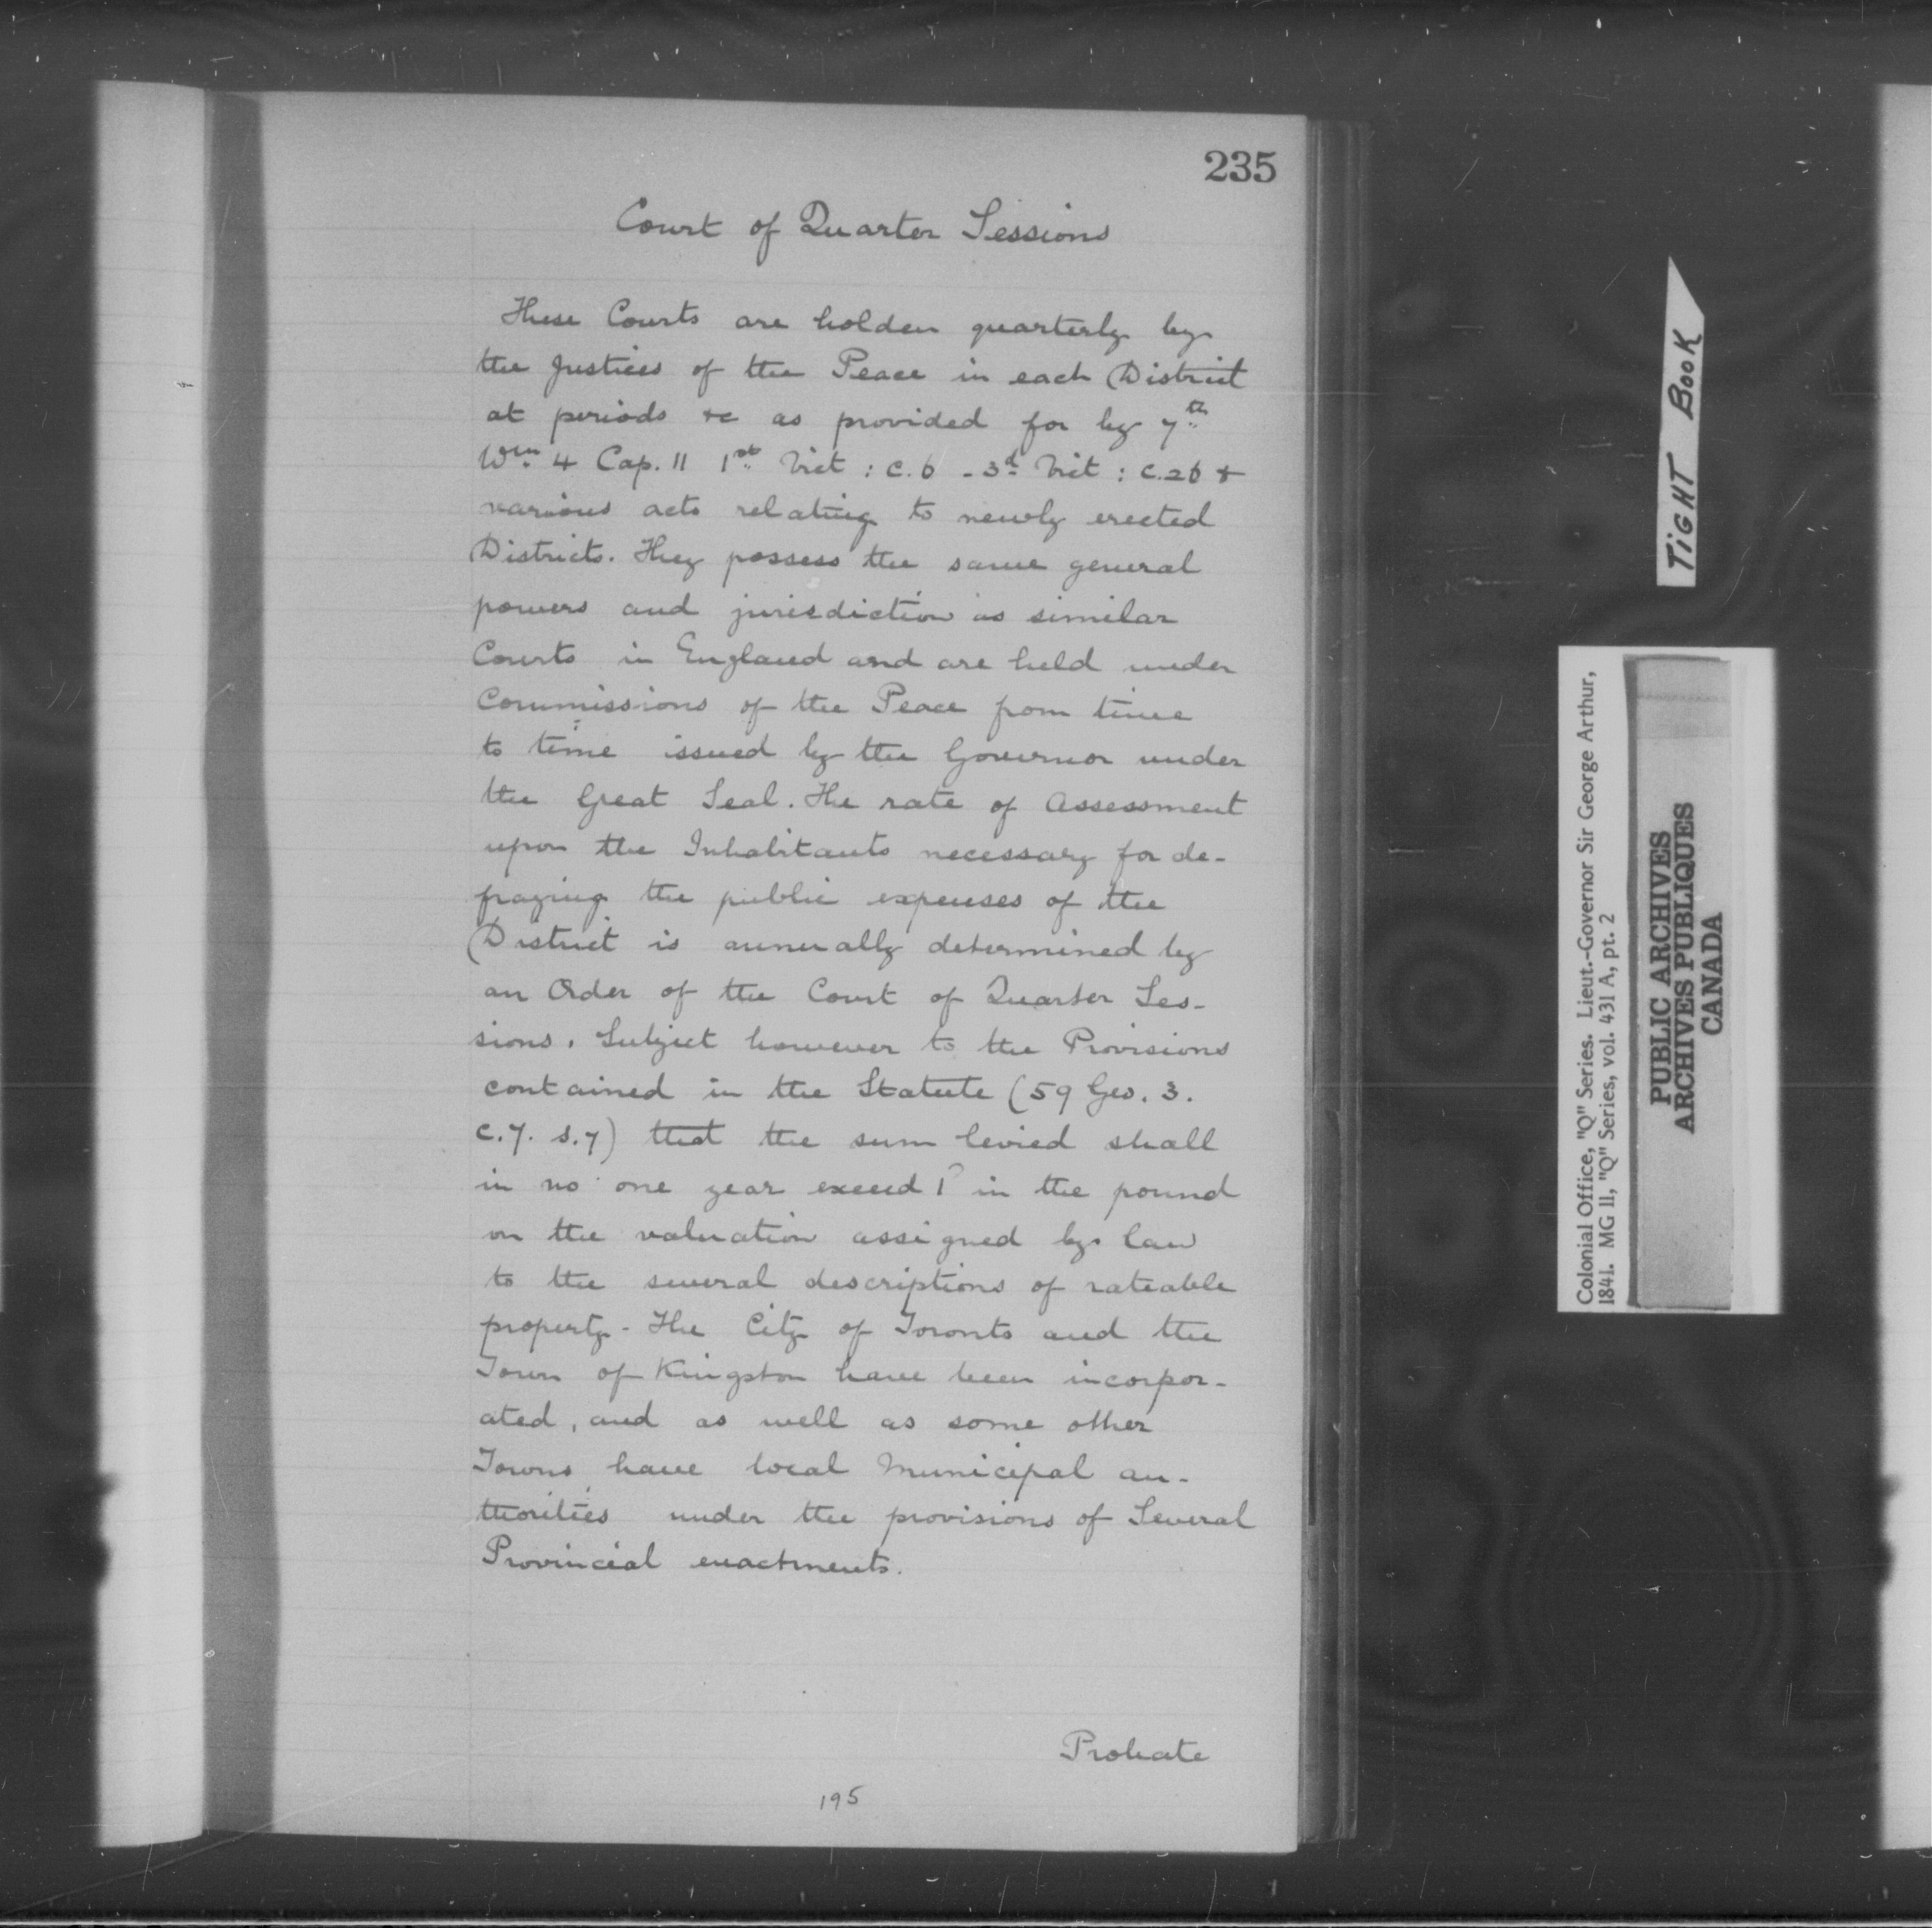 235
Court of Quarter Sessions
These Courts are holden quarterly by
the Justices of the Peace in each District
at periods &c as provided for by 7th
Wm. 4 Cap. 11 1st Vict : c. 6 - 3d Vict : c. 26 &
various acts relating to newly erected
Districts. They possess the same general
powers and jurisdiction as similar
Courts in England and are held under
Commissions of the Peace from time
to time issued by the Governor under
the Great Seal. The rate of Assessment
upon the Inhabitants necessary for de-
fraying the public expenses of the
District is annually determined by
an Order of the Court of Quarter Ses-
sions. Subject however to the Provisions
contained in the Statute (59 Geo. 3.
c. 7. s. 7) that the sum levied shall
in no one year exceed 1d in the pound
on the valuation assigned by law
to the several descriptions of rateable
property - The City of Toronto and the
Town of Kingston have been incorpor-
ated, and as well as some other
Towns have local Municipal au-
thorities under the provisions of Several
Provincial enactments.
Probate
195
TIGHT BOOK
Colonial Office, "Q" Series. Lieut.-Governor Sir George Arthur,
1841. MG 11, "Q" Series, vol. 431 A, pt. 2
PUBLIC ARCHIVES
ARCHIVES PUBLIQUES
CANADA